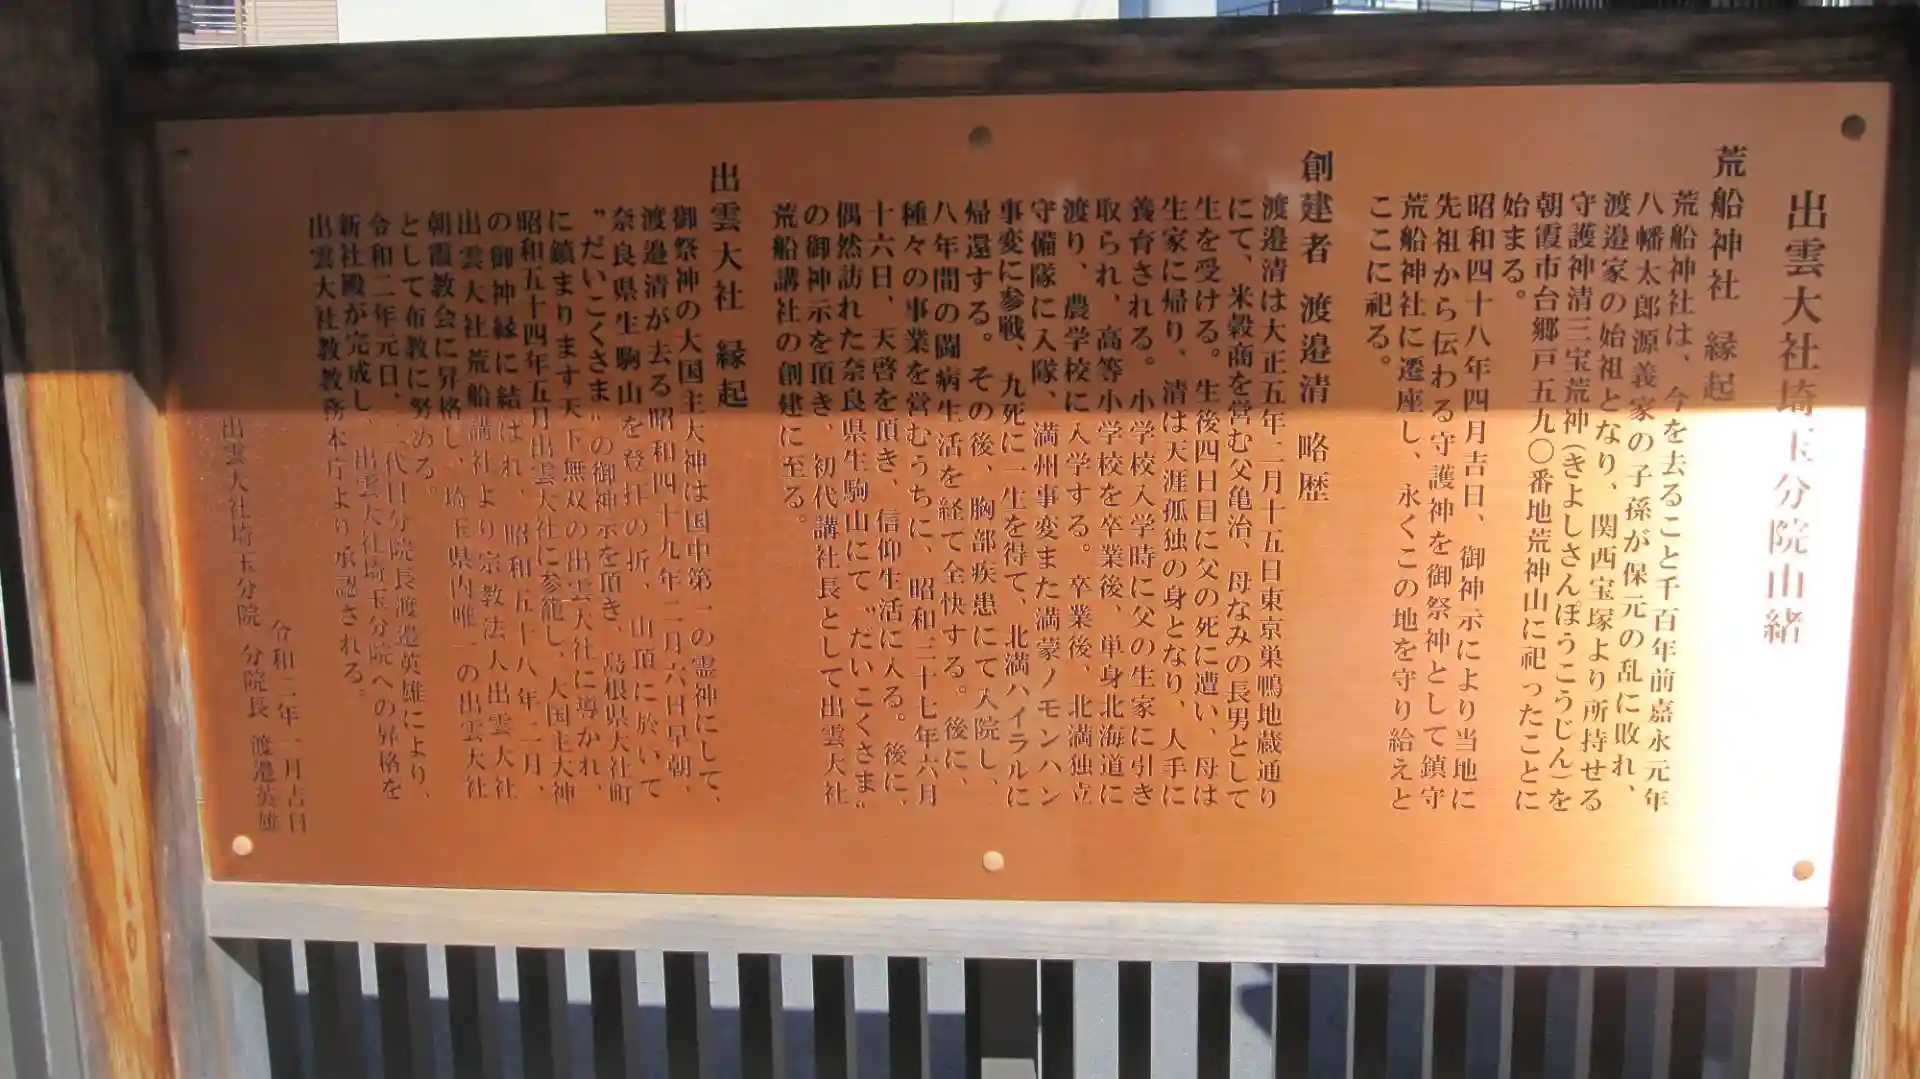 出雲大社埼玉分院由緒
荒船神社 縁起
荒船神社は、今を去ること千百年前嘉永元年
八幡太郎源義家の子孫が保元の乱に敗れ、
渡邉家の始祖となり、関西宝塚より所持せる
守護神清三宝荒神(きよしさんぽうこうじん)を
朝霞市台郷戸五九〇番地荒神山に祀ったことに
始まる。
昭和四十八年四月吉日、御神示により当地に
先祖から伝わる守護神を御祭神として鎮守
荒船神社に遷座し、永くこの地を守り給えと
ここに祀る。
創建者 渡邉清 略歴
渡邉清は大正五年二月十五日東京巣鴨地蔵通り
にて、米穀商を営む父亀治、母なみの長男として
生を受ける。生後四日目に父の死に遭い、母は
生家に帰り、清は天涯孤独の身となり、人手に
養育される。小学校入学時に父の生家に引き
取られ、高等小学校を卒業後、単身北海道に
渡り、農学校に入学する。卒業後、北満独立
守備隊に入隊、満州事変また満蒙ノモンハン
事変に参戦、九死に一生を得て、北満ハイラルに
帰還する。その後、胸部疾患にて入院し、
八年間の闘病生活を経て全快する。後に、
種々の事業を営むうちに、昭和三十七年六月
十六日、天啓を頂き、信仰生活に入る。後に、
偶然訪れた奈良県生駒山にて〝だいこくさま〟
の御神示を頂き、初代講社長として出雲大社
荒船講社の創建に至る。
出雲大社 縁起
御祭神の大国主大神は国中第一の霊神にして、
渡邉清が去る昭和四十九年二月六日早朝、
奈良県生駒山を登拝の折、山頂に於いて
〝だいこくさま〟の御神示を頂き、島根県大社町
に鎮まります天下無双の出雲大社に導かれ、
昭和五十四年五月出雲大社に参籠し、大国主大神
の御神縁に結ばれ、昭和五十八年二月、
出雲大社荒船講社より宗教法人出雲大社
朝霞教会に昇格し、埼玉県内唯一の出雲大社
として布教に努める。
令和二年元日、二代目分院長渡邉英雄により、
新社殿が完成し、出雲大社埼玉分院への昇格を
出雲大社教教務本庁より承認される。
令和二年一月吉日
出雲大社埼玉分院 分院長 渡邉英雄